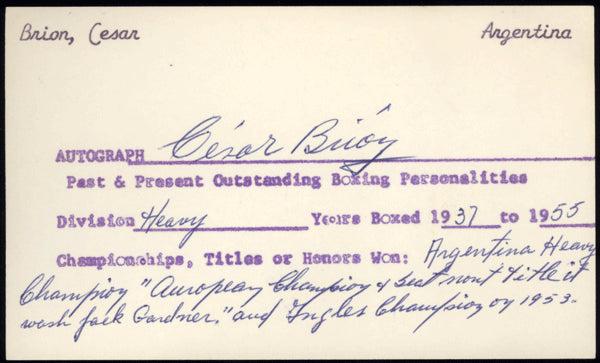 Brion, Cesar
Argentina
AUTOGRAPH César Brión
Past & Present Outstanding Boxing Personalities
Division Heavy Years Boxed 1937 to 1955
Championships, Titles or Honors Won: Argentina Heavy
Champioy "Auropeay Champioy & best mont title it
wosh Jack Gardner," and Ingles Champioy oy 1953.